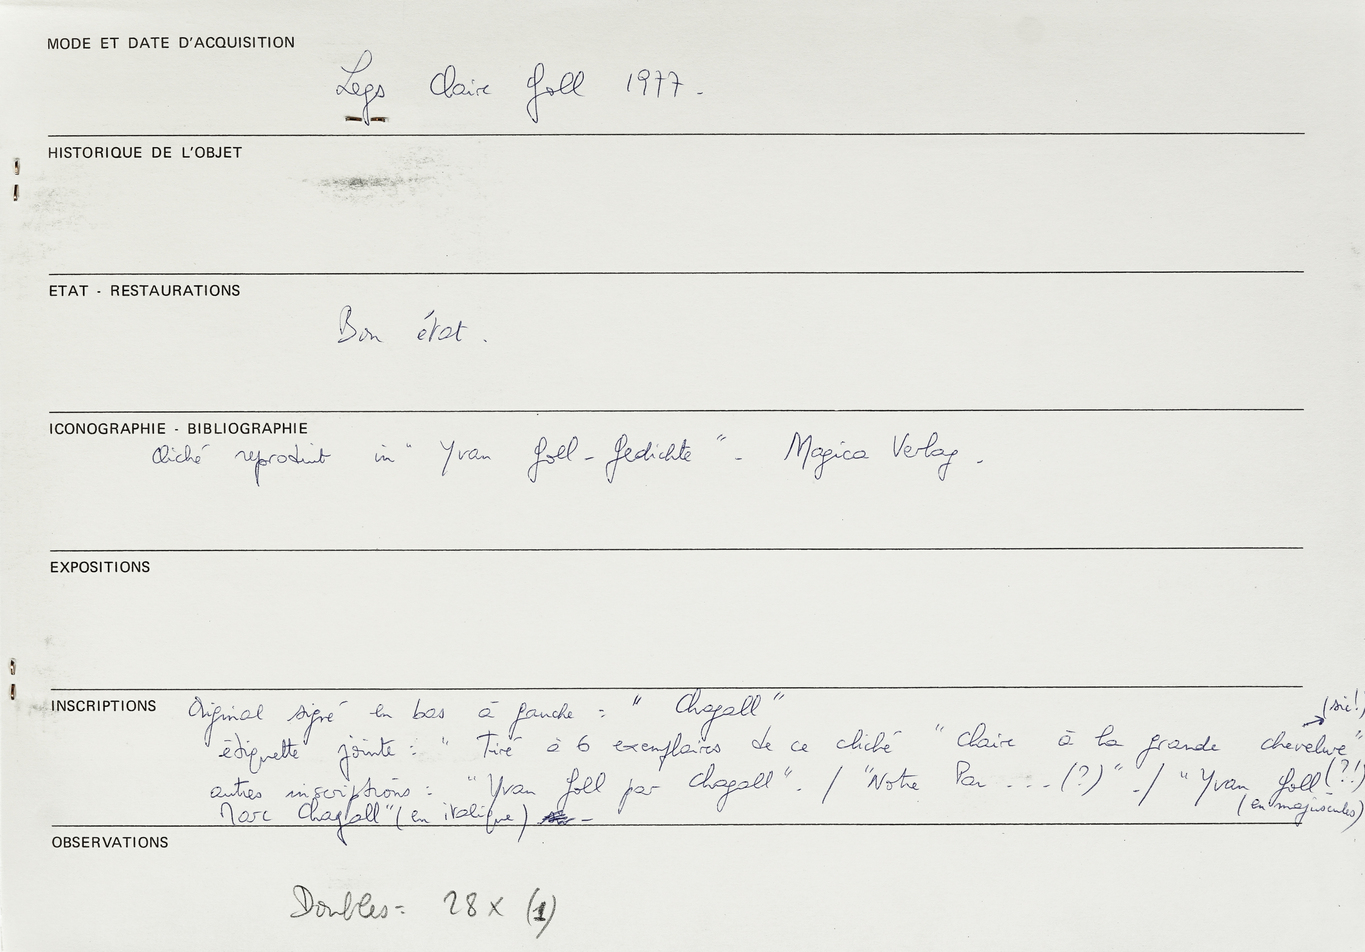 MODE ET DATE D'ACQUISITION
Legs Claire Goll 1977.
HISTORIQUE DE L'OBJET
ETAT - RESTAURATIONS
Bon état.
ICONOGRAPHIE - BIBLIOGRAPHIE
Cliché reproduit in " Yvan Goll - Gedichte " - Magica Verlag.
EXPOSITIONS
INSCRIPTIONS Original signé en bas à gauche : " Chagall "
(sic!)
étiquette jointe : " Tiré à 6 exemplaires de ce cliché " Claire à la grande chevelure "
autres inscriptions : " Yvan Goll par Chagall ". / "Notre Par ... (?) " . / " Yvan Goll (?!)
(en majuscules)
Marc Chagall" (en italique) -
OBSERVATIONS
Doubles = 28 x (1)